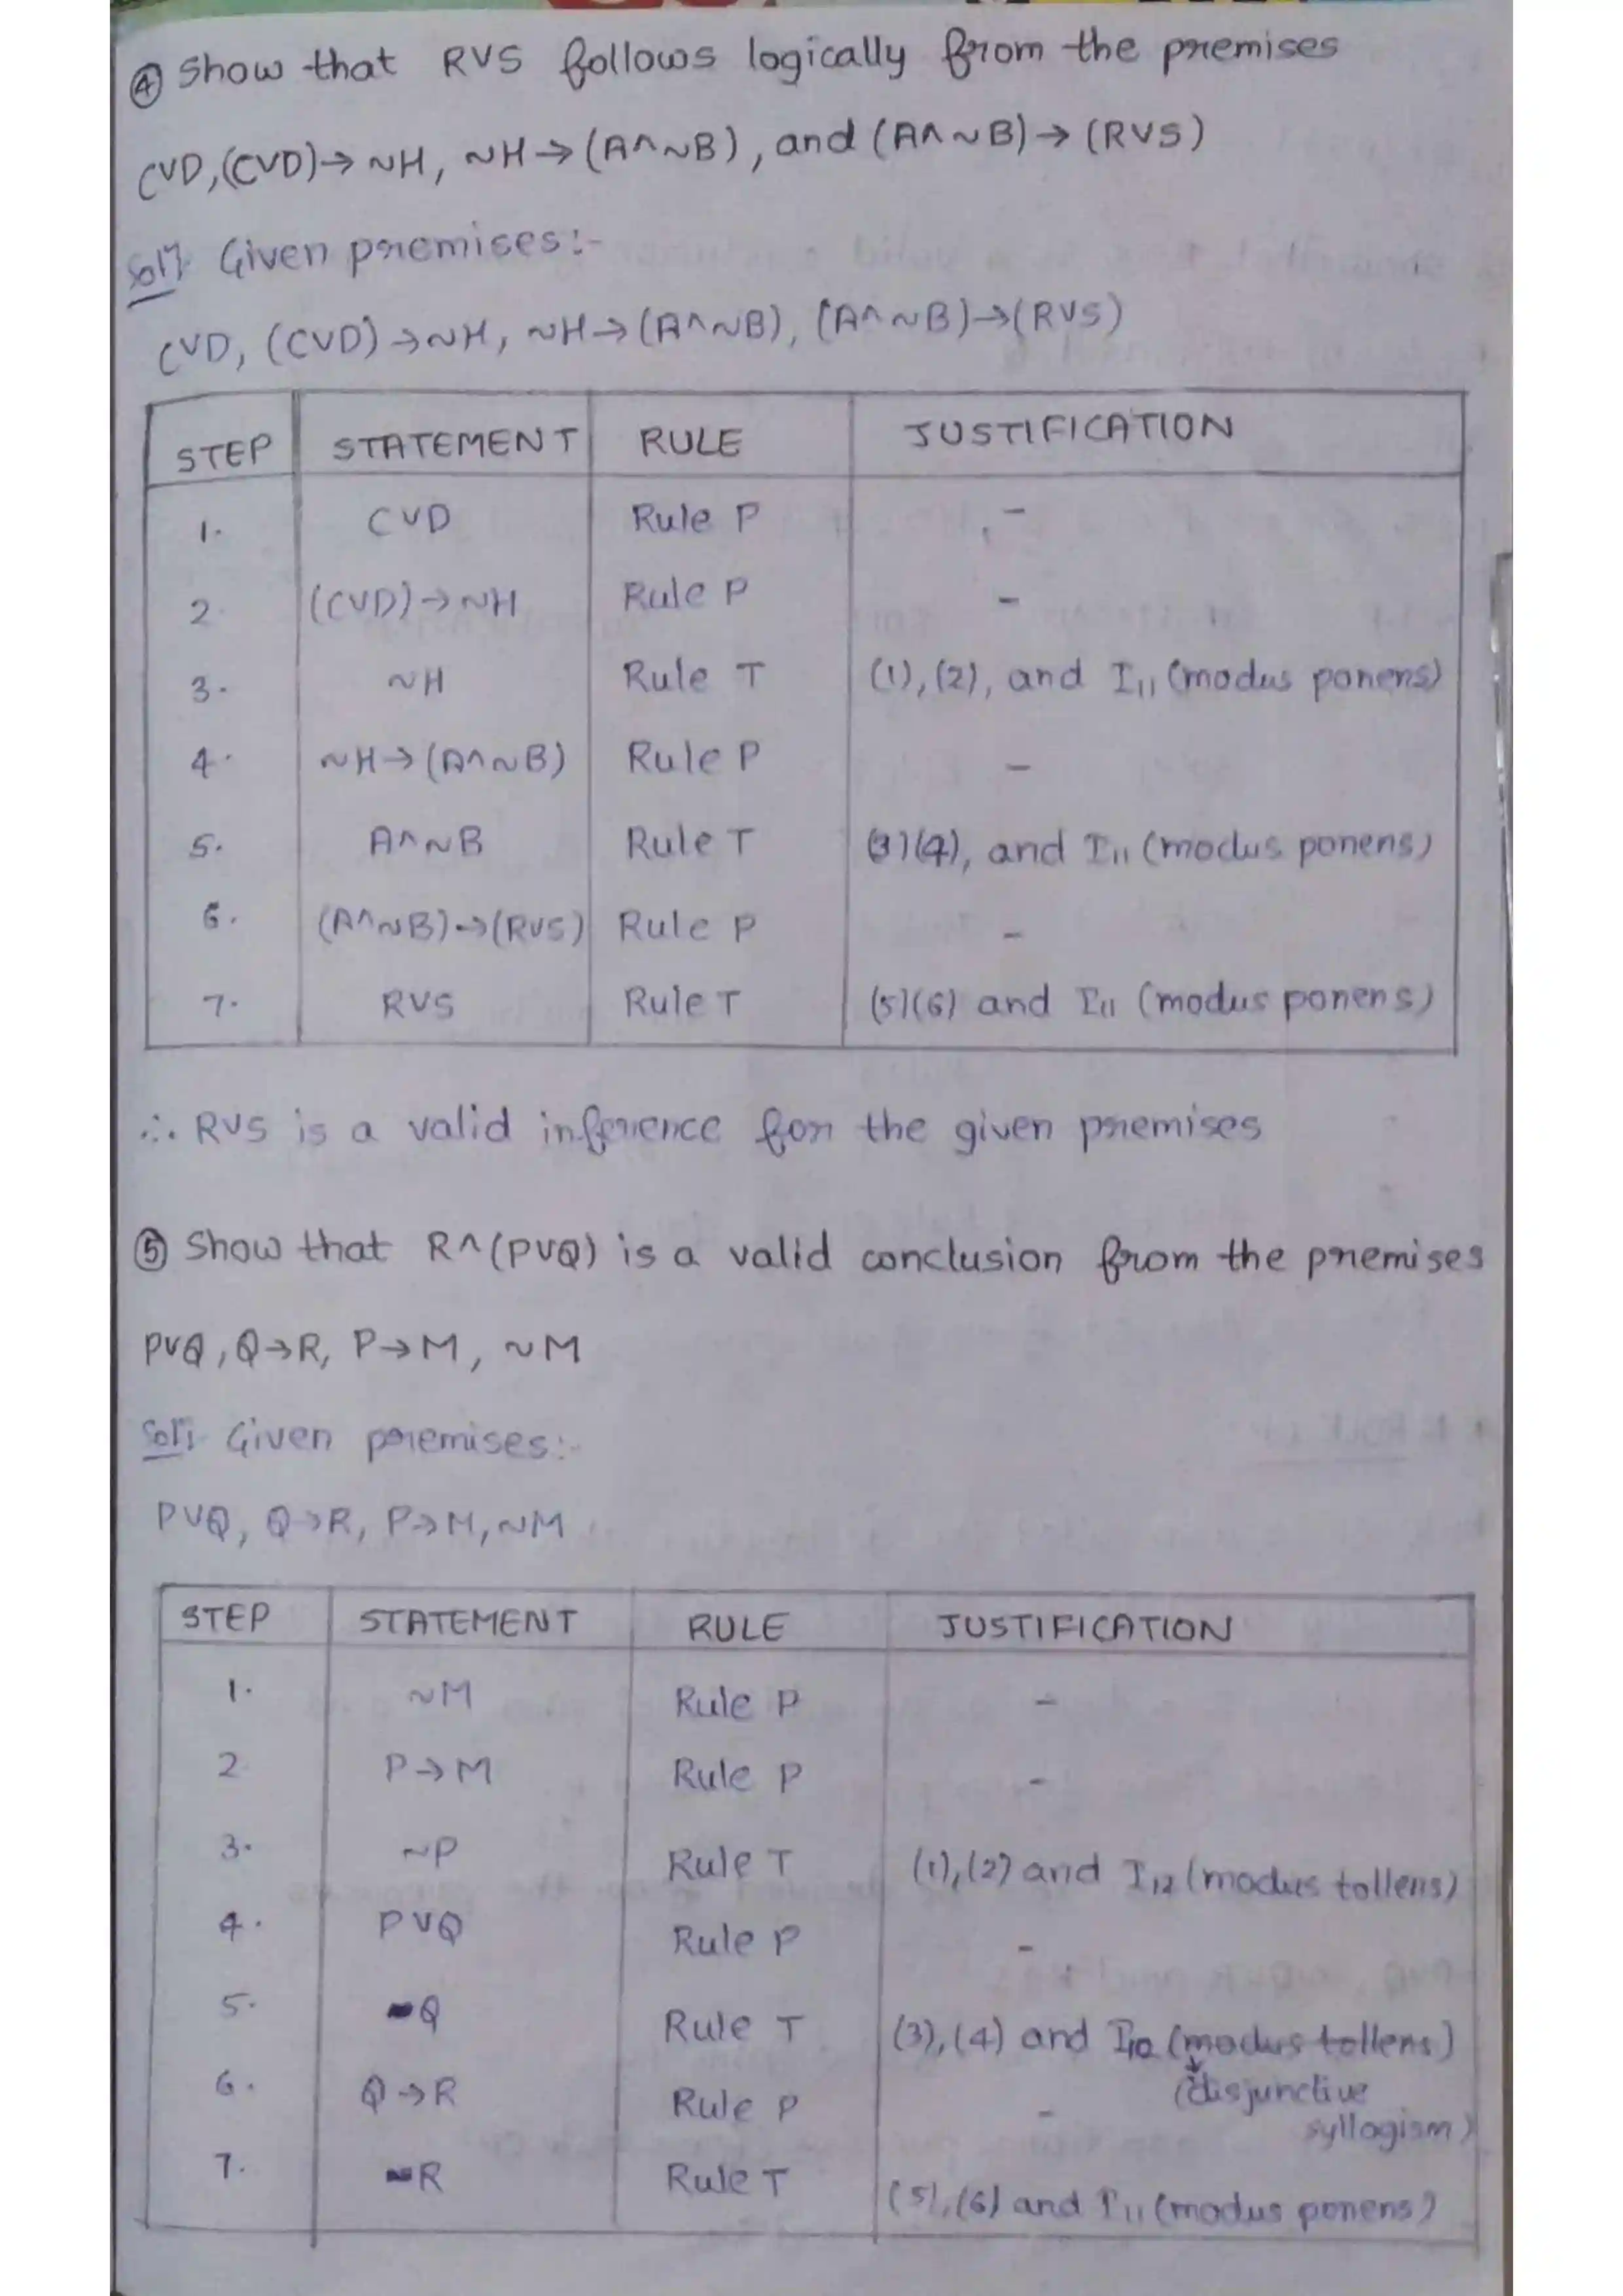 ④ Show that RVS follows logically from the premises
CVD, (CVD)→ ~H, ~H→(A^~B), and (A^~B)→ (RVS)
Soln Given premises:-
CVD, (CVD)→~H, ~H→(A^~B), (A^~B)→(RVS)
STEP STATEMENT RULE JUSTIFICATION
1. CVD Rule P -
2. (CVD)→~H Rule P -
3. ~H Rule T (1),(2), and I11 (modus ponens)
4. ~H→(A^~B) Rule P -
5. A^~B Rule T (3)(4), and I11 (modus ponens)
6. (A^~B)→(RVS) Rule P -
7. RVS Rule T (5)(6) and I11 (modus ponens)
∴ RVS is a valid inference for the given premises
⑤ Show that R^(PVQ) is a valid conclusion from the premises
PVQ, Q→R, P→M, ~M
Soln Given premises:-
PVQ, Q→R, P→M, ~M
STEP STATEMENT RULE JUSTIFICATION
1. ~M Rule P -
2. P→M Rule P -
3. ~P Rule T (1),(2) and I12 (modus tollens)
4. PVQ Rule P -
5. Q Rule T (3),(4) and I10 (modus tollens)
(disjunctive
6. Q→R Rule P -
syllogism)
7. R Rule T (5),(6) and I11 (modus ponens)